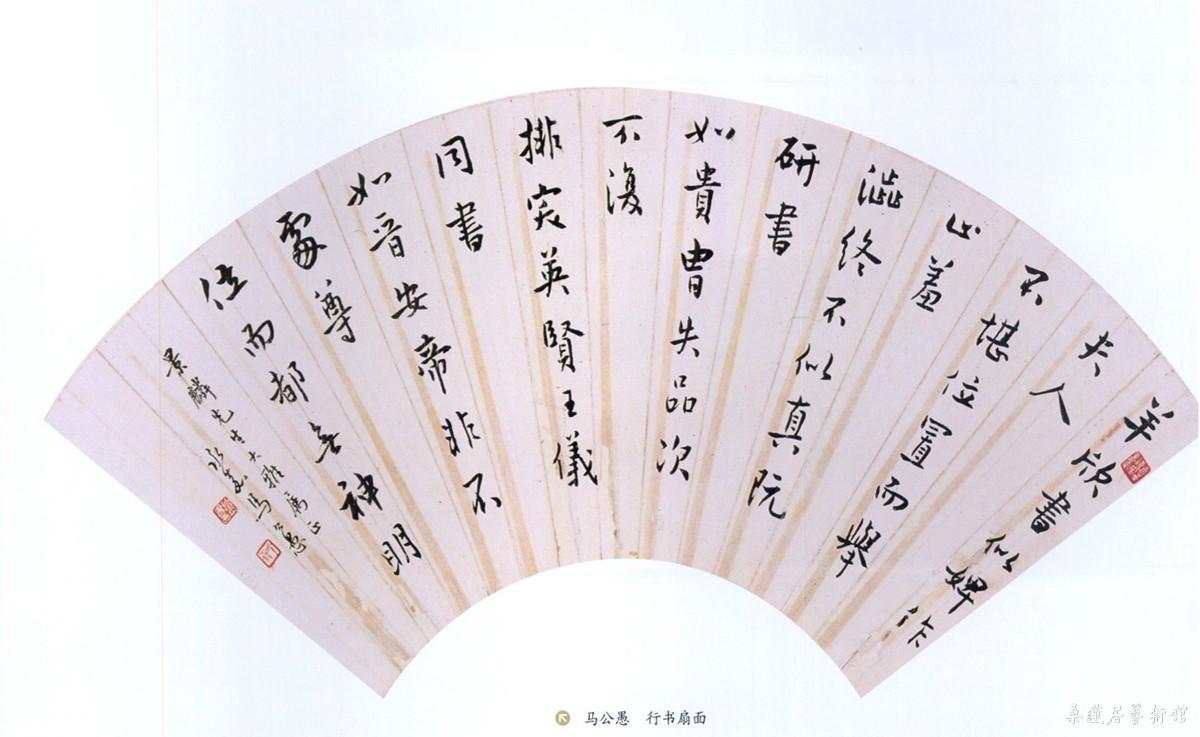 羊欣書似婢作
夫人
不堪位置而舉
止羞
澁終不似真阮
研書
如貴胄失品次
不復
排突英賢王儀
同書
如晉安帝非不
處尊
位而都無神明
景麟先生大雅属正
永嘉馬公愚
马公愚 行书扇面
桑蓮居藝術館